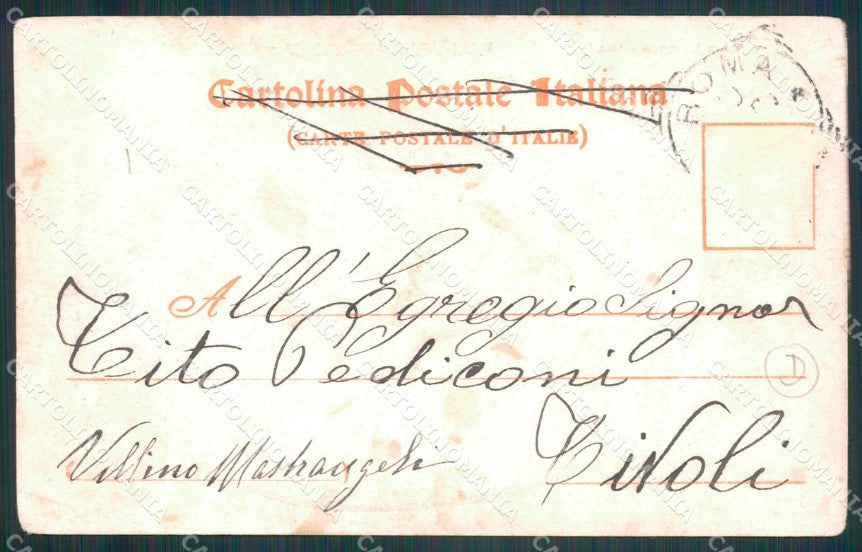 Cartolina Postale Italiana
(CARTE POSTALE D'ITALIE)
ROMA
All'Egregio Signor
Tito Pediconi
D
Tivoli
Mastrangelo
CARTOLINOMANIA